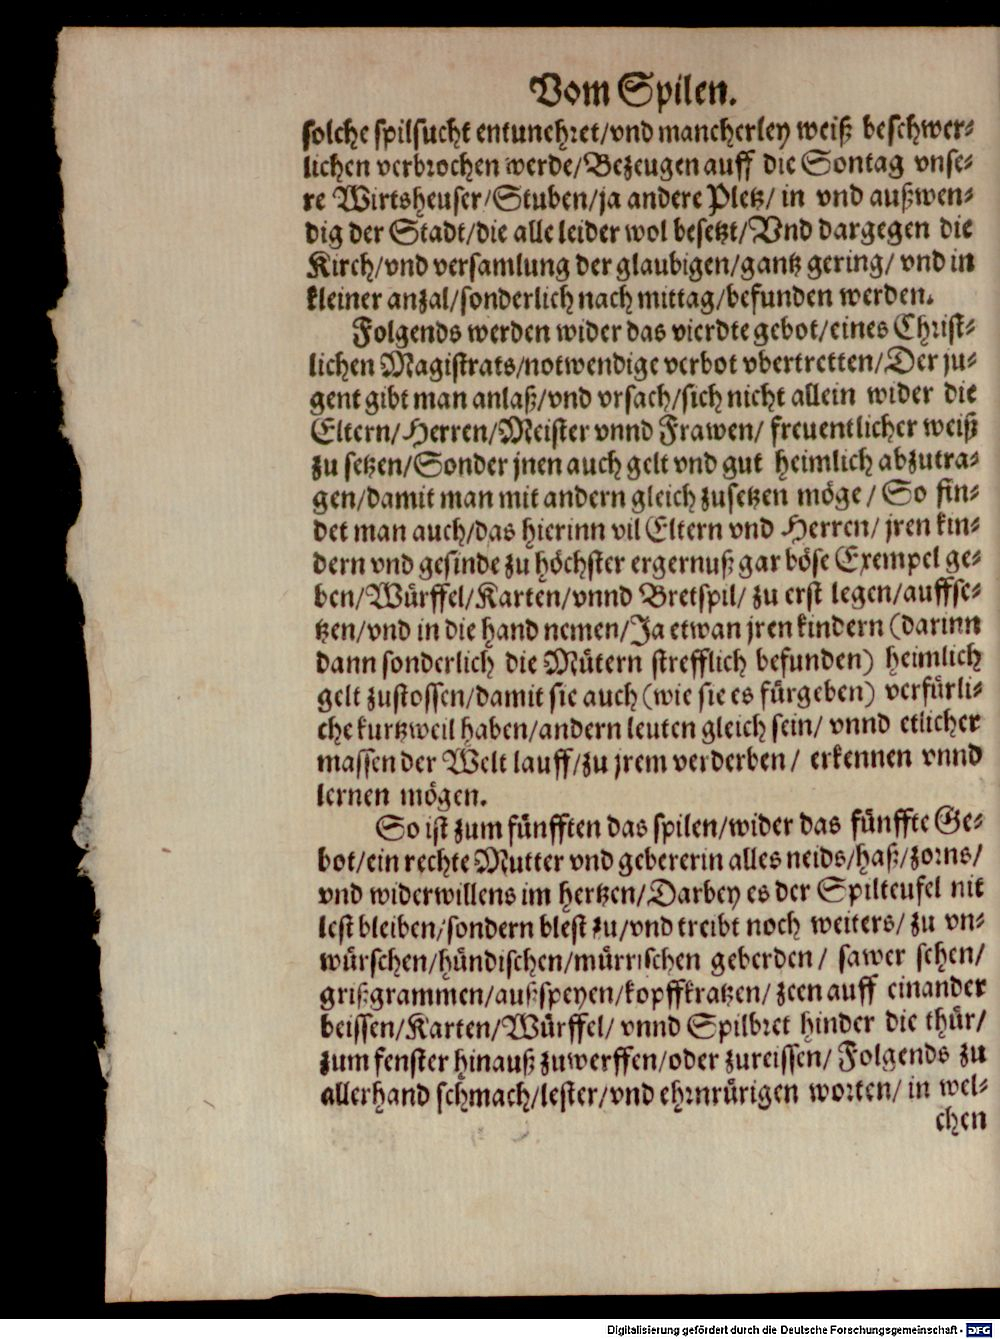 Vom Spilen.
solche spilsucht entunehret/vnd mancherley weiß beschwer-
lichen verbrochen werde/Bezeugen auff die Sontag vnse-
re Wirtsheuser/Stuben/ja andere Pletz/ in vnd außwen-
dig der Stadt/die alle leider wol besetzt/Vnd dargegen die
Kirch/vnd versamlung der glaubigen/gantz gering/ vnd in
kleiner anzal/sonderlich nach mittag/befunden werden.
Folgends werden wider das vierdte gebot/eines Christ-
lichen Magistrats/notwendige verbot vbertretten/Der ju-
gent gibt man anlaß/vnd vrsach/sich nicht allein wider die
Eltern/Herren/Meister vnnd Frawen/ freuentlicher weiß
zu setzen/Sonder jnen auch gelt vnd gut heimlich abzutra-
gen/damit man mit andern gleich zusetzen möge/ So fin-
det man auch/das hierinn vil Eltern vnd Herren/ jren kin-
dern vnd gesinde zu höchster ergernuß gar böse Exempel ge-
ben/Würffel/Karten/vnnd Bretspil/ zu erst legen/auffse-
tzen/vnd in die hand nemen/Ja etwan jren kindern (darinn
dann sonderlich die Mütern strefflich befunden) heimlich
gelt zustossen/damit sie auch (wie sie es fürgeben) verfürli-
che kurtzweil haben/andern leuten gleich sein/ vnnd etlicher
massen der Welt lauff/zu jrem verderben/ erkennen vnnd
lernen mögen.
So ist zum fünfften das spilen/wider das fünffte Ge-
bot/ein rechte Mutter vnd gebererin alles neids/haß/zorns/
vnd widerwillens im hertzen/Darbey es der Spilteufel nit
lest bleiben/sondern blest zu/vnd treibt noch weiters/ zu vn-
würschen/hündischen/mürrischen geberden/ sawer sehen/
grißgrammen/außspeyen/kopffkratzen/ zeen auff einander
beissen/Karten/Würffel/ vnnd Spilbret hinder die thür/
zum fenster hinauß zuwerffen/oder zureissen/ Folgends zu
allerhand schmach/lester/vnd ehrnrürigen worten/ in wel-
chen
Digitalisierung gefördert durch die Deutsche Forschungsgemeinschaft - DFG